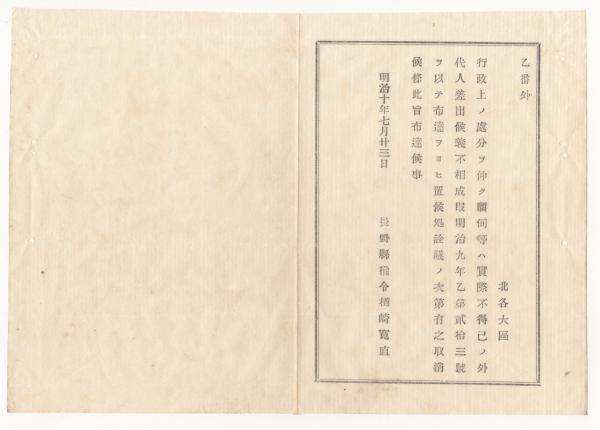 乙番外
北各大區
行政上ノ處分ヲ仰ク願伺等ハ實際不得已ノ外
代人差出候義不相成段明治九年乙第貳拾三號
ヲ以テ布達ヲヨヒ置候処詮議ノ次第有之取消
候條此旨布達候事
明治十年七月廿三日
長野縣權令楢崎寬直